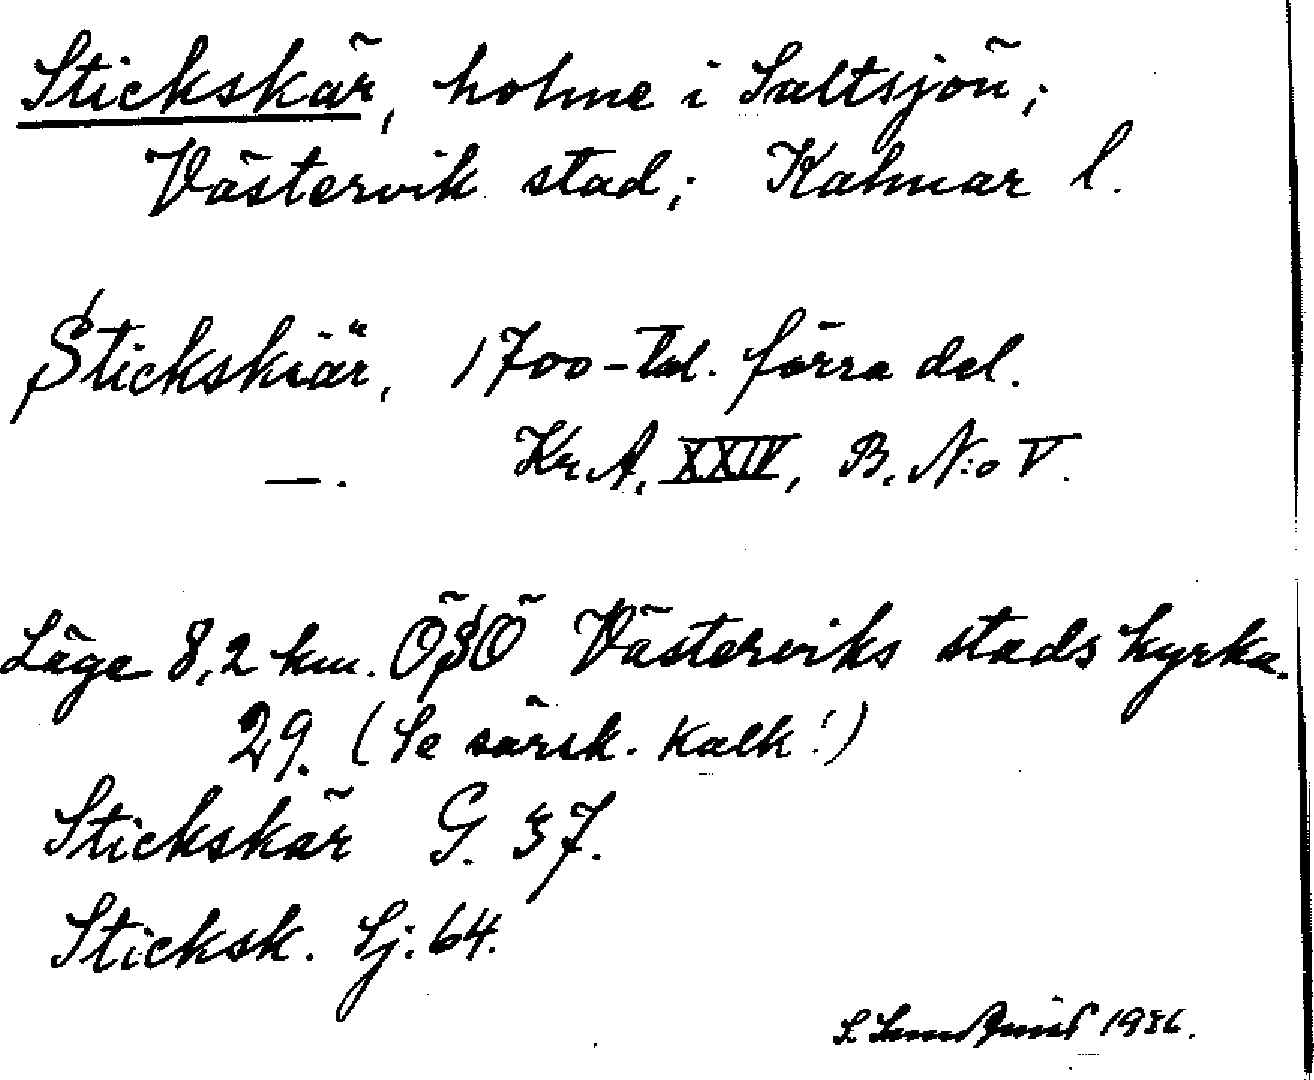 Stickskär, holme i Saltsjön;
Västervik stad; Kalmar l.
Stickskiär, 1700-tal. förra del.
—. Kr.A. XXIV, B. N:o V.
Läge 8,2 km. ÖSÖ Västerviks stads kyrka.
29. (Se särsk. kalk!)
Stickskär G. 37.
Sticksk. Sj. 64.
S. 1936.